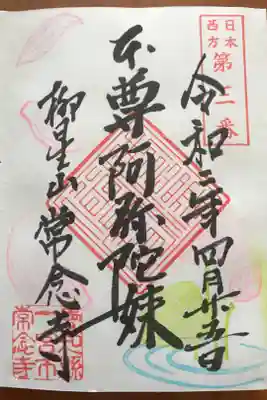 日本
西方
第
番
令和二年四月廿五日
本尊阿弥陀如来
柳星山常念寺
愛知県
一宮市
常念寺